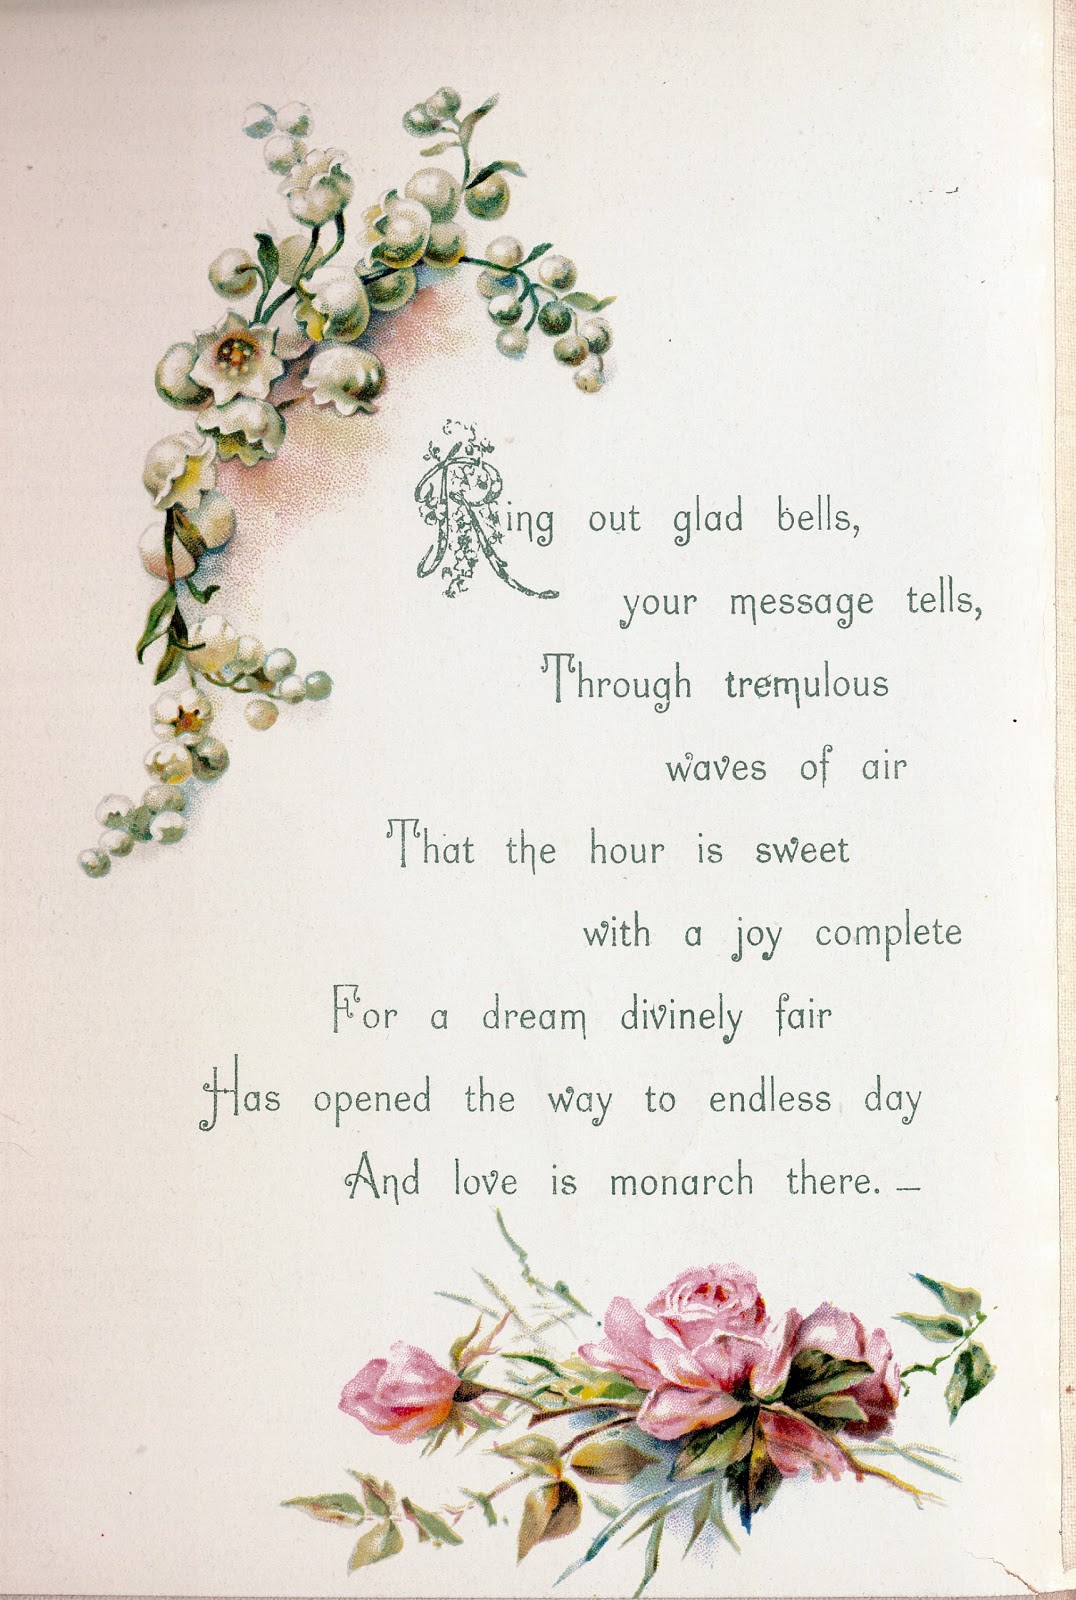 Ring out glad bells,
your message tells,
Through tremulous
waves of air
That the hour is sweet
with a joy complete
For a dream divinely fair
Has opened the way to endless day
And love is monarch there. —